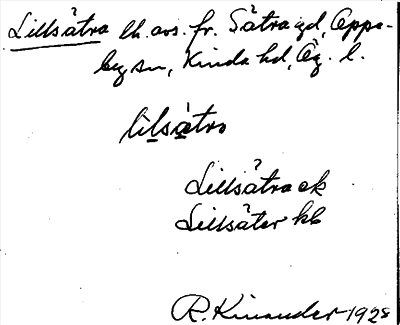 Lillsätra lh. avs. fr. Sätra gd, Oppe-
by sn, Kinda hd, Ög. l.
lilsätra
Lillsätra ek
Lillsäter kb
R. Kinander 1928